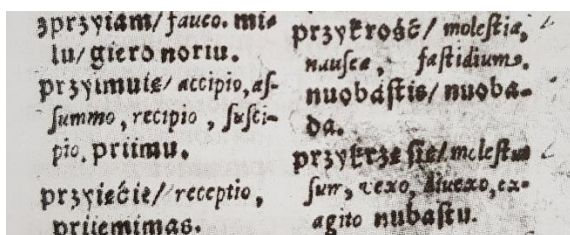 zprzyiam/ fauco. mi⸗
lu/ giero noriu.
przyimuię/ accipio, aſ-
ſummo, recipio, ſuſci-
pio. priimu.
przyięćie/ receptio,
priiemimas.
przykrość/ moleſtia,
nauſea, faſtidium.
nuobáſtis/ nuoba⸗
da.
przykrzę ſię/ moleſtus
ſum, vexo, diuexo, ex-
agito nubaſtu.